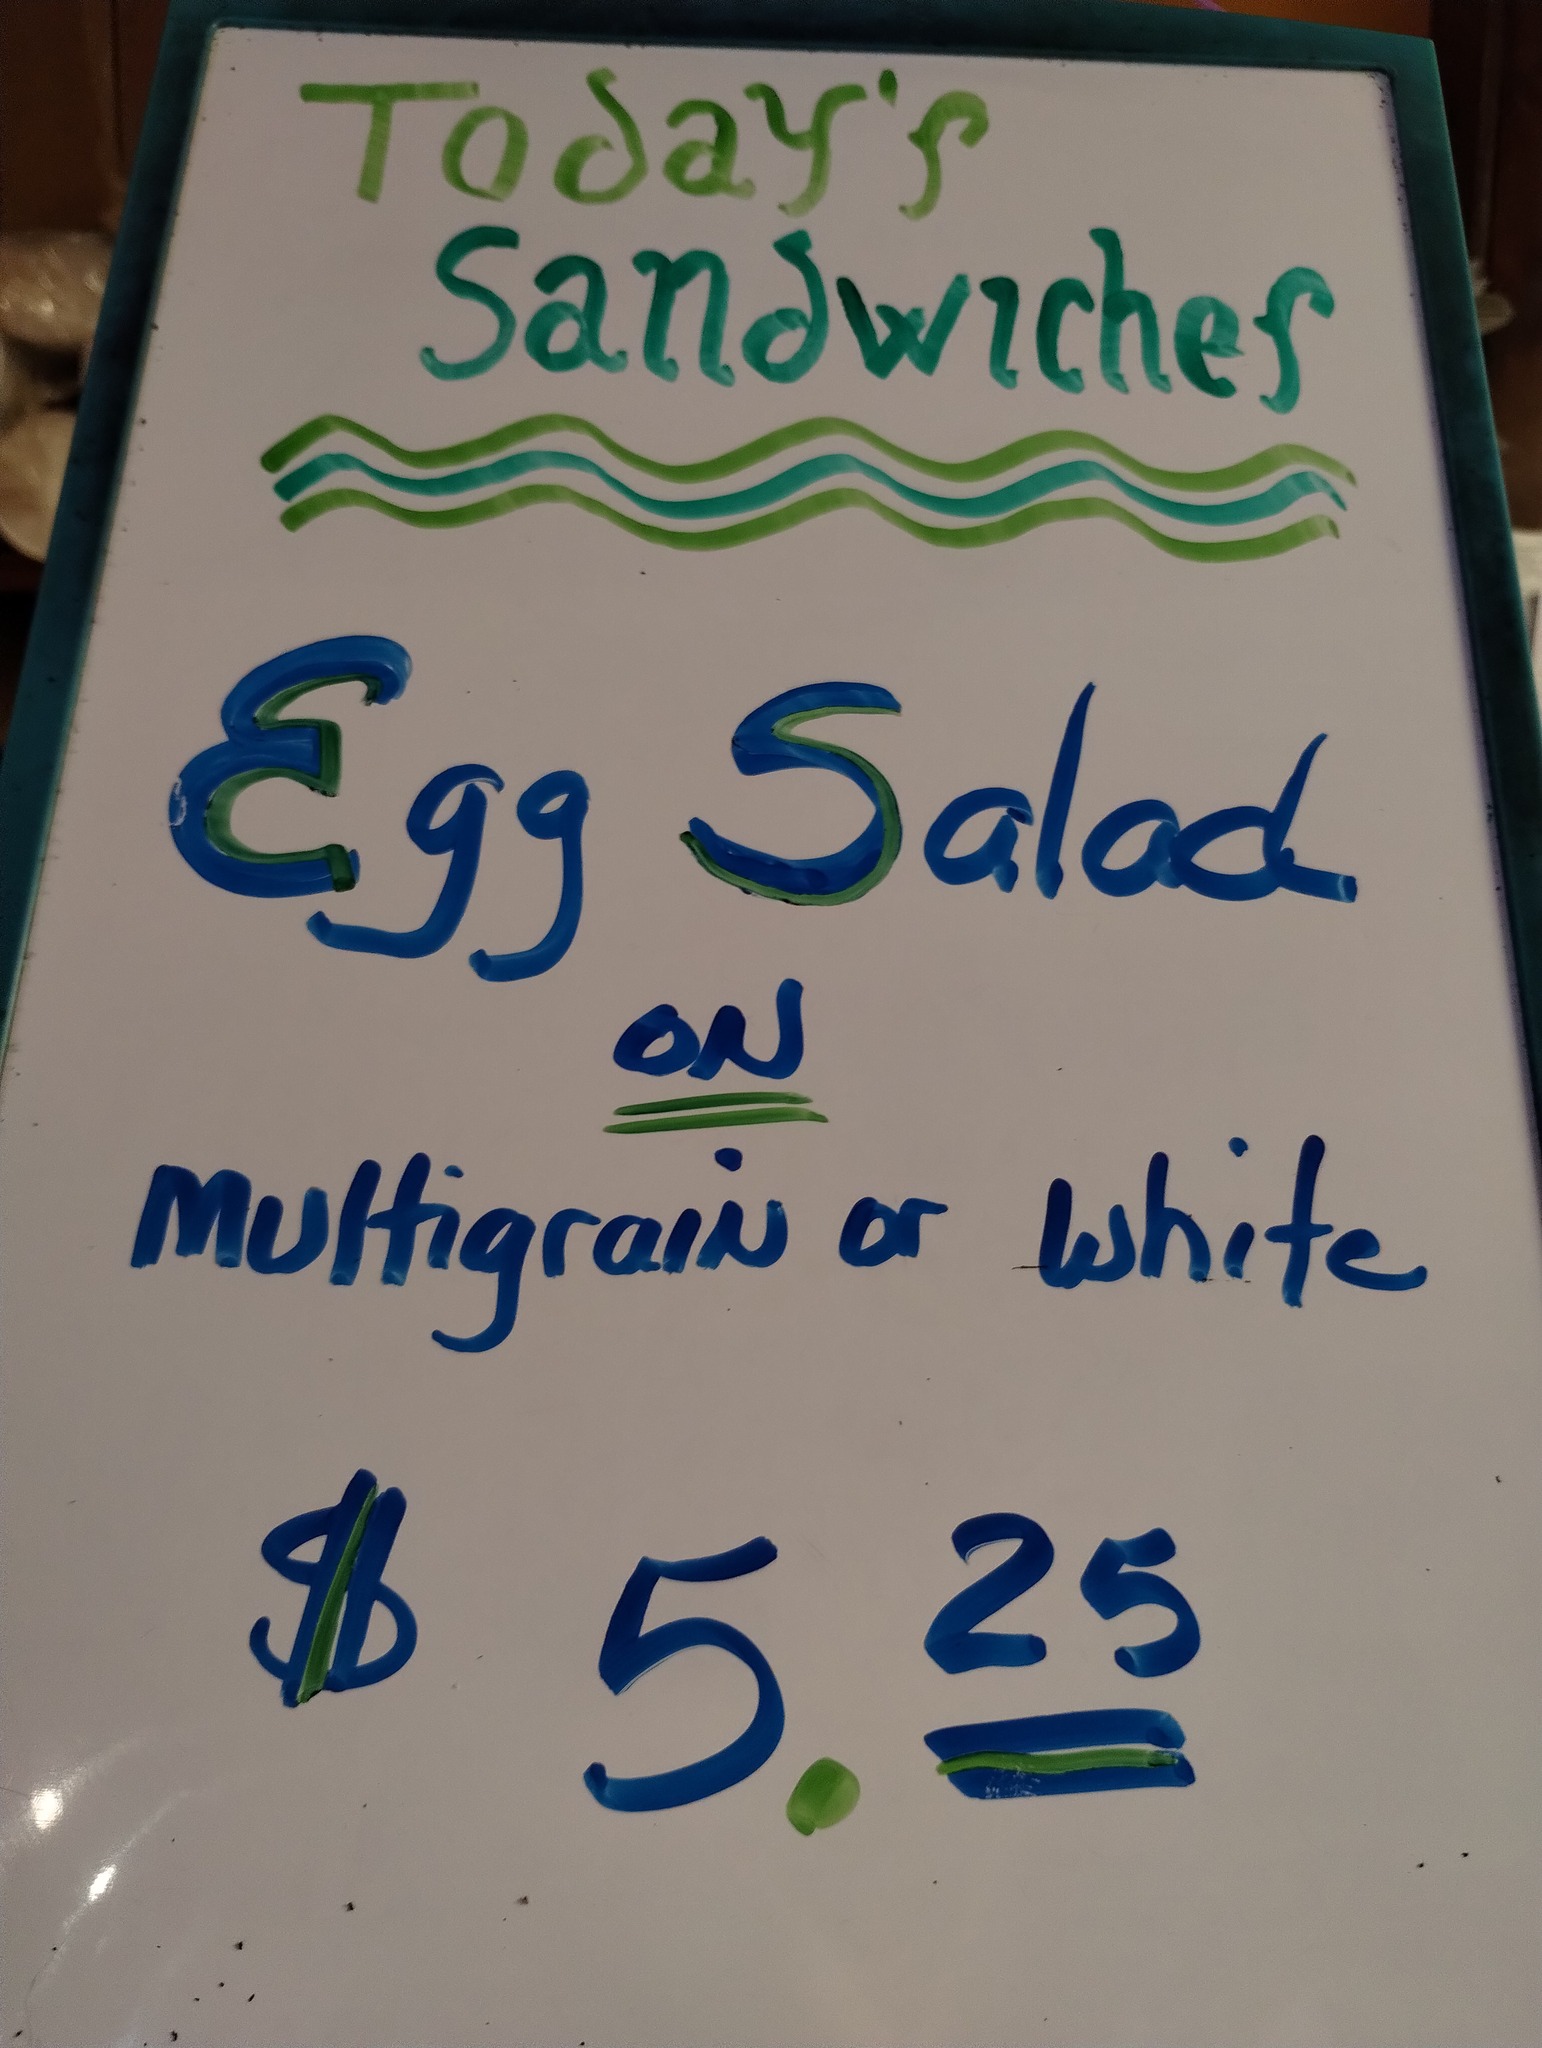 Today's
Sandwiches
Egg Salad
on
Multigrain or White
$ 5.25